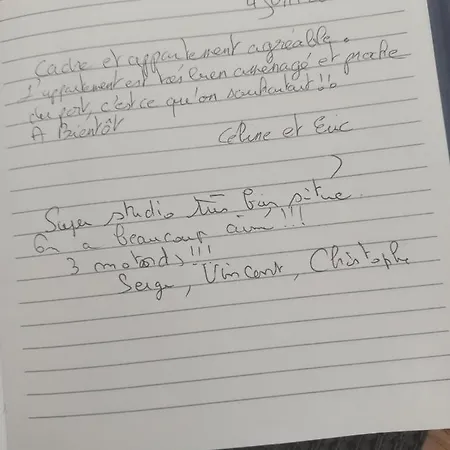 Cadre et appartement agréable.
L'appartement est très bien aménagé et proche
du port, c'est ce qu'on souhaitait !!
A Bientôt
Céline et Eric
Super studio très bien situé.
On a beaucoup aimé !!!
3 motards !!!
Serge, Vincent, Christophe